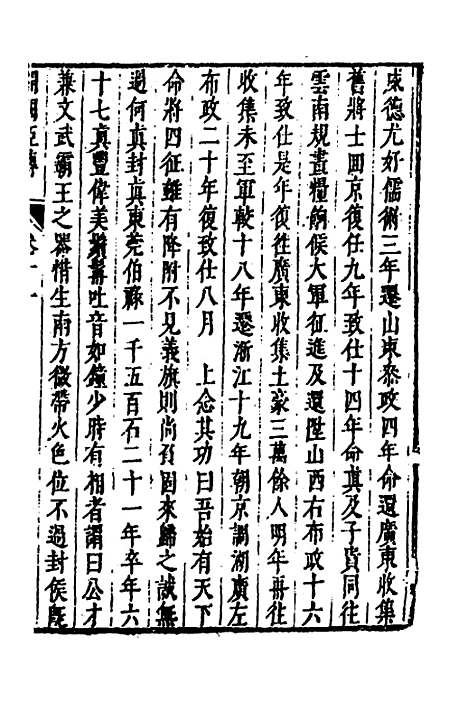 威德尤好儒術三年遷山東叅政四年命還廣東收集
舊將士囬京復任九年致仕十四年命真及子貴同往
雲南規畫糧餉候大軍征進及還陞山西右布政十六
年致仕是年復徃廣東收集土豪三萬餘人明年再往
收集未至軍較十八年遷浙江十九年朝京調湖廣左
布政二十年復致仕八月　上念其功曰吾始有天下
命將四征雖有降附不見義旗則尚孜固來歸之誠無
過何真封真東莞伯祿一千五百石二十一年卒年六
十七真豐偉美鬚髯吐音如鐘少時有相者謂曰公才
兼文武霸王之器惜生南方微帶火色位不過封侯旣
卷十一